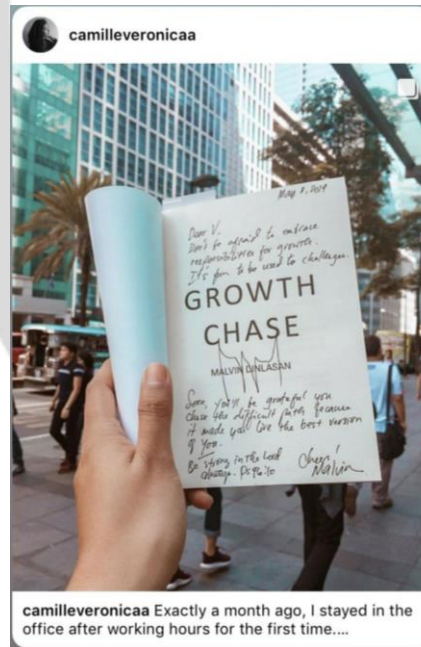 camilleveronicaa
May 8, 2019
Dear V.
Don't be afraid to embrace
responsibilities for growth.
It's fun to be used to challenges.
GROWTH
CHASE
MALVIN DINLASAN
Soon, you'll be grateful you
chose the difficult path because
it made you live the best version
of You.
Be strong in the Lord
Cheers!
Malvin
camilleveronicaa Exactly a month ago, I stayed in the
office after working hours for the first time....